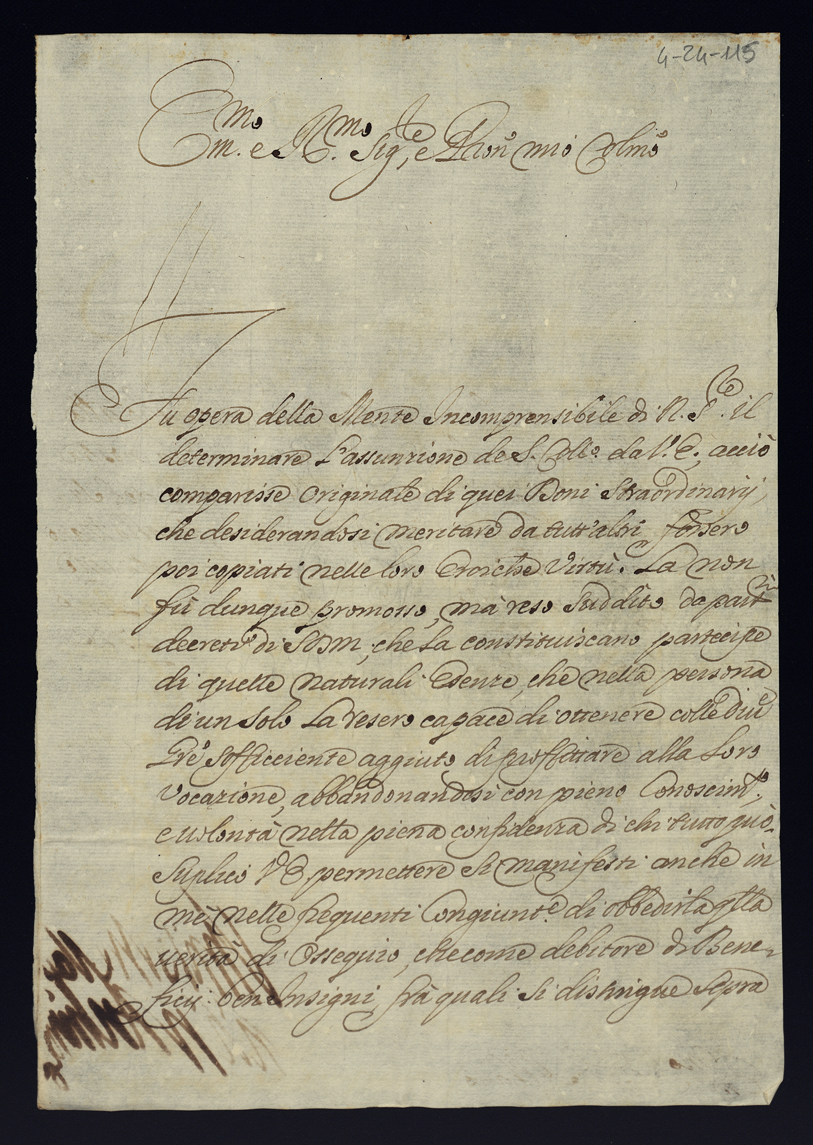 4-24-115
Em.mo e R.mo Sig.re, e Pron mio Colmo
Fù opera della Mente Incomprensibile di N. S.re il
determinare L'assunzione de S. Coll.o da V. E., acciò
comparisse Originale di quei Doni Straordinarij,
che desiderandosi meritare da tutt'altri fossero
poi copiati nelle loro Eroiche Virtù. La non
fù dunque promosso, mà reso suddito da part.ri
decreti di SDM, che La constituiscano partecipe
di quelle naturali Esenze, che nella persona
di un Solo La resero capace di ottenere colle Diue
Gre Sofficciente aggiuto di proffittare alla Loro
Vocazione, abbandonandosi con pieno Conoscim.to,
e uolontà nella piena confidenza di chi tutto può.
Suplico V E permettere si manifesti anche in
me nelle frequenti Congiunt.e di obbedirla qlla
uerità di Ossequio, che come debitore di Bene-
ficij ben Insigni, frà quali si distingue sopra